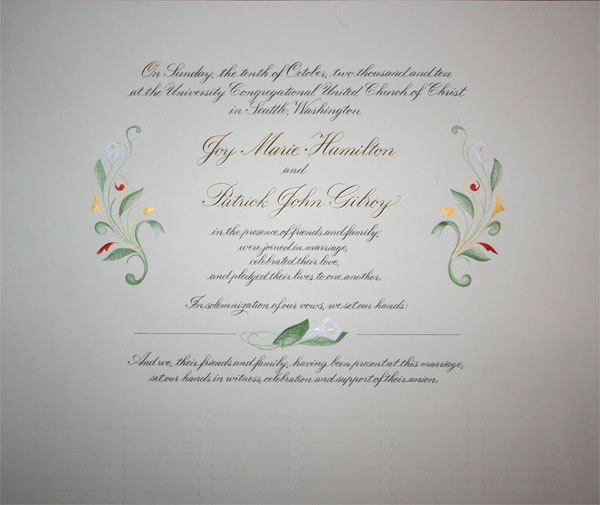 On Sunday, the tenth of October, two thousand and ten
at the University Congregational United Church of Christ
in Seattle, Washington
Joy Marie Hamilton
and
Patrick John Gilroy
in the presence of friends and family,
were joined in marriage,
celebrated their love,
and pledged their lives to one another.
In solemnization of our vows, we set our hands:
And we, their friends and family, having been present at this marriage,
set our hands in witness, celebration and support of their union.